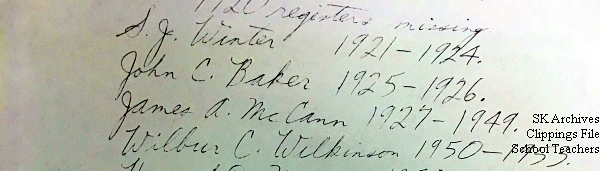 1920 registers missing
S. J. Winter 1921-1924.
John C. Baker 1925-1926.
James A. McCann 1927-1949.
Wilbur C. Wilkinson 1950-
SK Archives
Clippings File
School Teachers